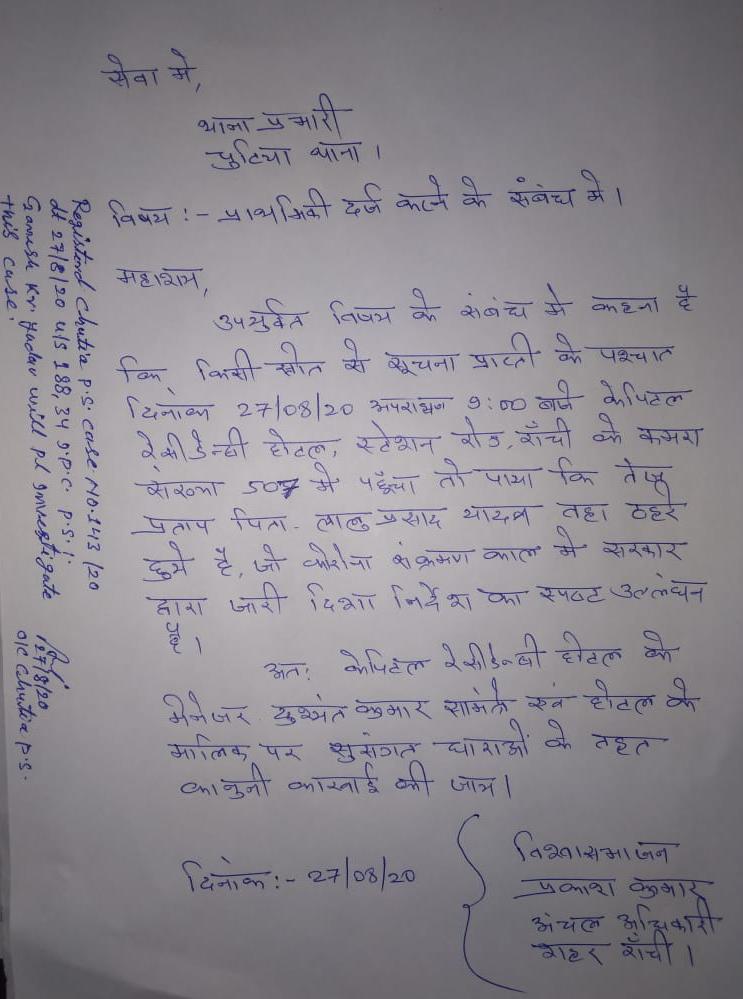 सेवा मे,
थाना प्रभारी
चुटिया थाना ।
विषय :- प्राथमिकी दर्ज करने के संबंध मे ।
महाशय,
उपर्युक्त विषय के संबंध मे कहना है
कि किसी स्रोत से सूचना प्राप्ती के पश्चात
दिनांक 27/08/20 अपराह्न 9:00 बजे केपिटल
रेसीडेन्सी होटल, स्टेशन रोड, राँची के कमरा
संख्या 507 मे पहुँचा तो पाया कि तेज
प्रताप पिता- लालु प्रसाद यादव वहा ठहरे
हुये है, जो कोरोना संक्रमण काल मे सरकार
द्वारा जारी दिशा निर्देश का स्पष्ट उल्लंघन
है ।
अत: केपिटल रेसीडेन्सी होटल के
मेनेजर दुश्यंत कुमार सामंतो एवं होटल के
मालिक पर सुसंगत धाराओं के तहत
कानुनी कारवाई की जाय ।
दिनांक :- 27/08/20
विश्वासभाजन
प्रकाश कुमार
अंचल अधिकारी
शहर राँची ।
Registered Chutia P.S. Case No. 143/20
dt 27/8/20 u/s 188, 34 I.P.C. P.S.I.
Ganesh Kr. Yadav will pl investigate
this case.
27/8/20
O/C Chutia P.S.